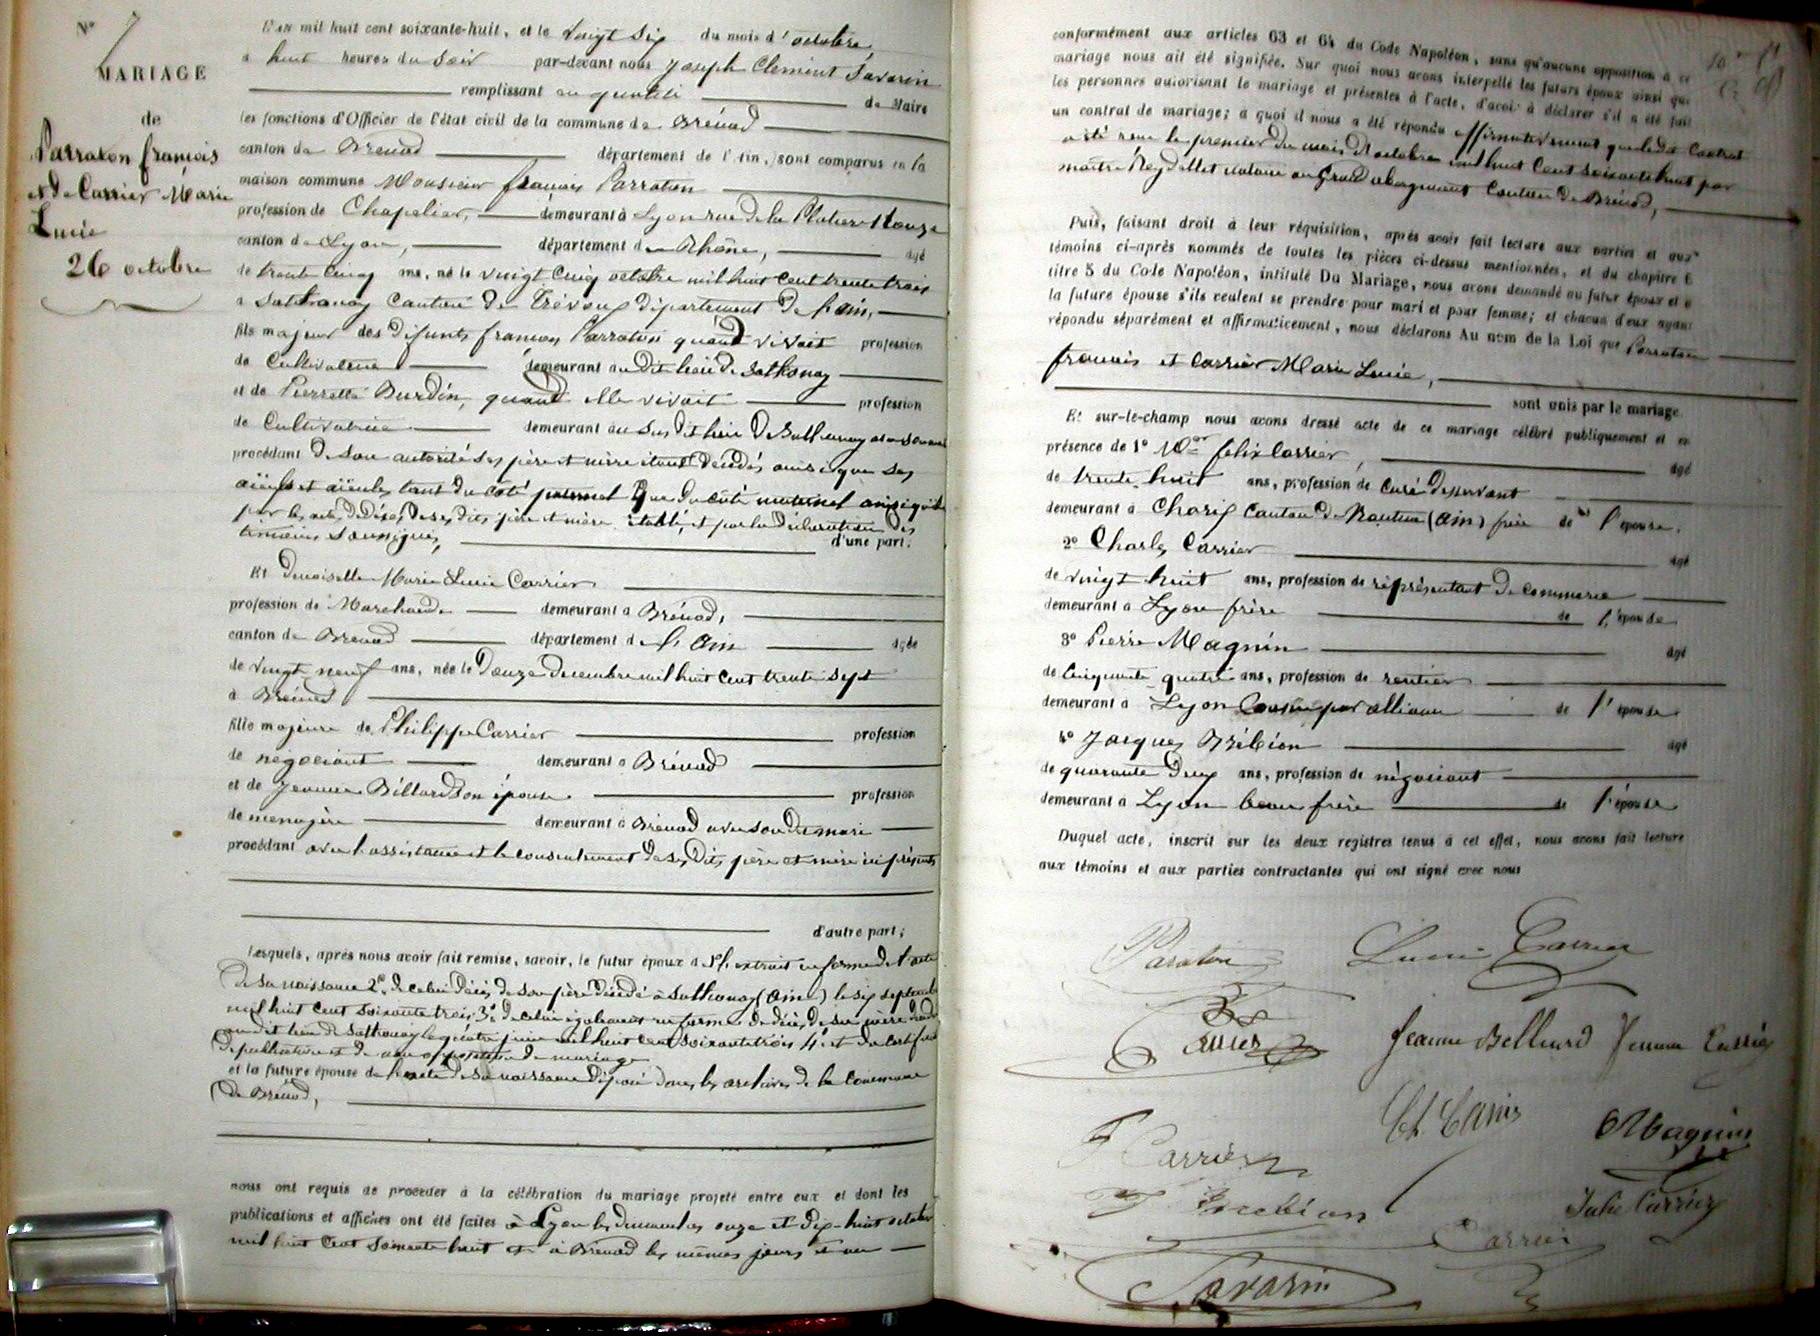 N° 7
MARIAGE
de
Parraton françois
et de Carrier Marie
Lucie
26 octobre
L'AN mil huit cent soixante-huit, et le vingt six du mois d'octobre
à huit heures du soir par-devant nous Joseph Clément Savarin
remplissant en qualité de Maire
les fonctions d'Officier de l'état civil de la commune de Brénod
canton de Brenod département de l'Ain, sont comparus en la
maison commune Monsieur françois Parraton
profession de Chapelier, demeurant à Lyon rue de la Platière
canton de Lyon, département du Rhône, âgé
de trente cinq ans, né le vingt cinq octobre mil huit cent trente trois
à Sathonay Canton de Trévoux département de l'ain,
fils majeur des défunts françois Parraton quand vivait profession
de Cultivateur demeurant au dit lieu de Sathonay
et de Pierrette Burdin, quand elle vivait profession
de Cultivatrice demeurant au susdit lieu de Sathonay
procédant de son autorité ses père et mère étant décédés ainsi que ses
aïeuls et aïeules tant du côté paternel que du côté maternel ainsi qu'il
par les actes de décès de ses dits père et mère établi, et par la déclaration des
témoins soussignés, d'une part;
Et demoiselle Marie Lucie Carrier
profession de Marchande demeurant à Brénod,
canton de Brenod département de l'Ain âgée
de vingt neuf ans, née le douze decembre mil huit cent trente sept
à Brénod
fille majeure de Philippe Carrier profession
de négociant demeurant à Brénod
et de Jeanne Billard son épouse profession
de menagère demeurant à Brénod avec son dit mari
procédant avec l'assistance et le consentement de ses dits père et mère ici présents
d'autre part;
Lesquels, après nous avoir fait remise, savoir, le futur époux 1° l'extrait en forme de l'acte
de sa naissance 2° de celui décès de son père décédé à Sathonay (ain) le six septembre
mil huit cent soixante trois 3° de celui également en forme de décès de sa mère
au dit lieu de Sathonay le quatre juin mil huit cent soixante trois 4° et du certificat
de publication et de non opposition de mariage
et la future épouse de l'acte de sa naissance déposé dans les archives de la Commune
de Brénod,
nous ont requis de procéder à la célébration du mariage projeté entre eux et dont les
publications et affiches ont été faites à Lyon les dimanches onze et dix-huit octobre
mil huit cent soixante huit et à Brénod les mêmes jours et an
conformément aux articles 63 et 64 du Code Napoléon, sans qu'aucune opposition à ce
mariage nous ait été signifiée. Sur quoi nous avons interpellé les futurs époux ainsi que
les personnes autorisant le mariage et présentes à l'acte, d'avoir à déclarer s'il a été fait
un contrat de mariage; à quoi il nous a été répondu affirmativement que ledit Contrat
a été reçu le premier du mois d'octobre mil huit cent soixante huit par
maître Reydellet notaire au Grand abergement Canton de Brénod,
Puis, faisant droit à leur réquisition, après avoir fait lecture aux parties et aux
témoins ci-après nommés de toutes les pièces ci-dessus mentionnées, et du chapitre 6
titre 5 du Code Napoléon, intitulé Du Mariage, nous avons demandé au futur époux et à
la future épouse s'ils veulent se prendre pour mari et pour femme; et chacun d'eux ayant
répondu séparément et affirmativement, nous déclarons Au nom de la Loi que Parraton
françois et Carrier Marie Lucie,
sont unis par le mariage.
Et sur-le-champ nous avons dressé acte de ce mariage célébré publiquement et en
présence de 1° Felix Carrier, âgé
de trente huit ans, profession de curé desservant
demeurant à Charix Canton de Nantua (Ain) frère de l'épouse.
2° Charles Carrier âgé
de vingt huit ans, profession de représentant de commerce
demeurant à Lyon frère de l'épouse
3° Pierre Magnin âgé
de cinquante quatre ans, profession de rentier
demeurant à Lyon Cousin par alliance de l'épouse
4° Jacques Brébion âgé
de quarante deux ans, profession de négociant
demeurant à Lyon beau frère de l'épouse
Duquel acte, inscrit sur les deux registres tenus à cet effet, nous avons fait lecture
aux témoins et aux parties contractantes qui ont signé avec nous
Paraton Lucie Carrier
Jeanne Billiard
F Carrier Ch. Carrier Magnin
Brebion Julie Carrier
Carrier
Savarin